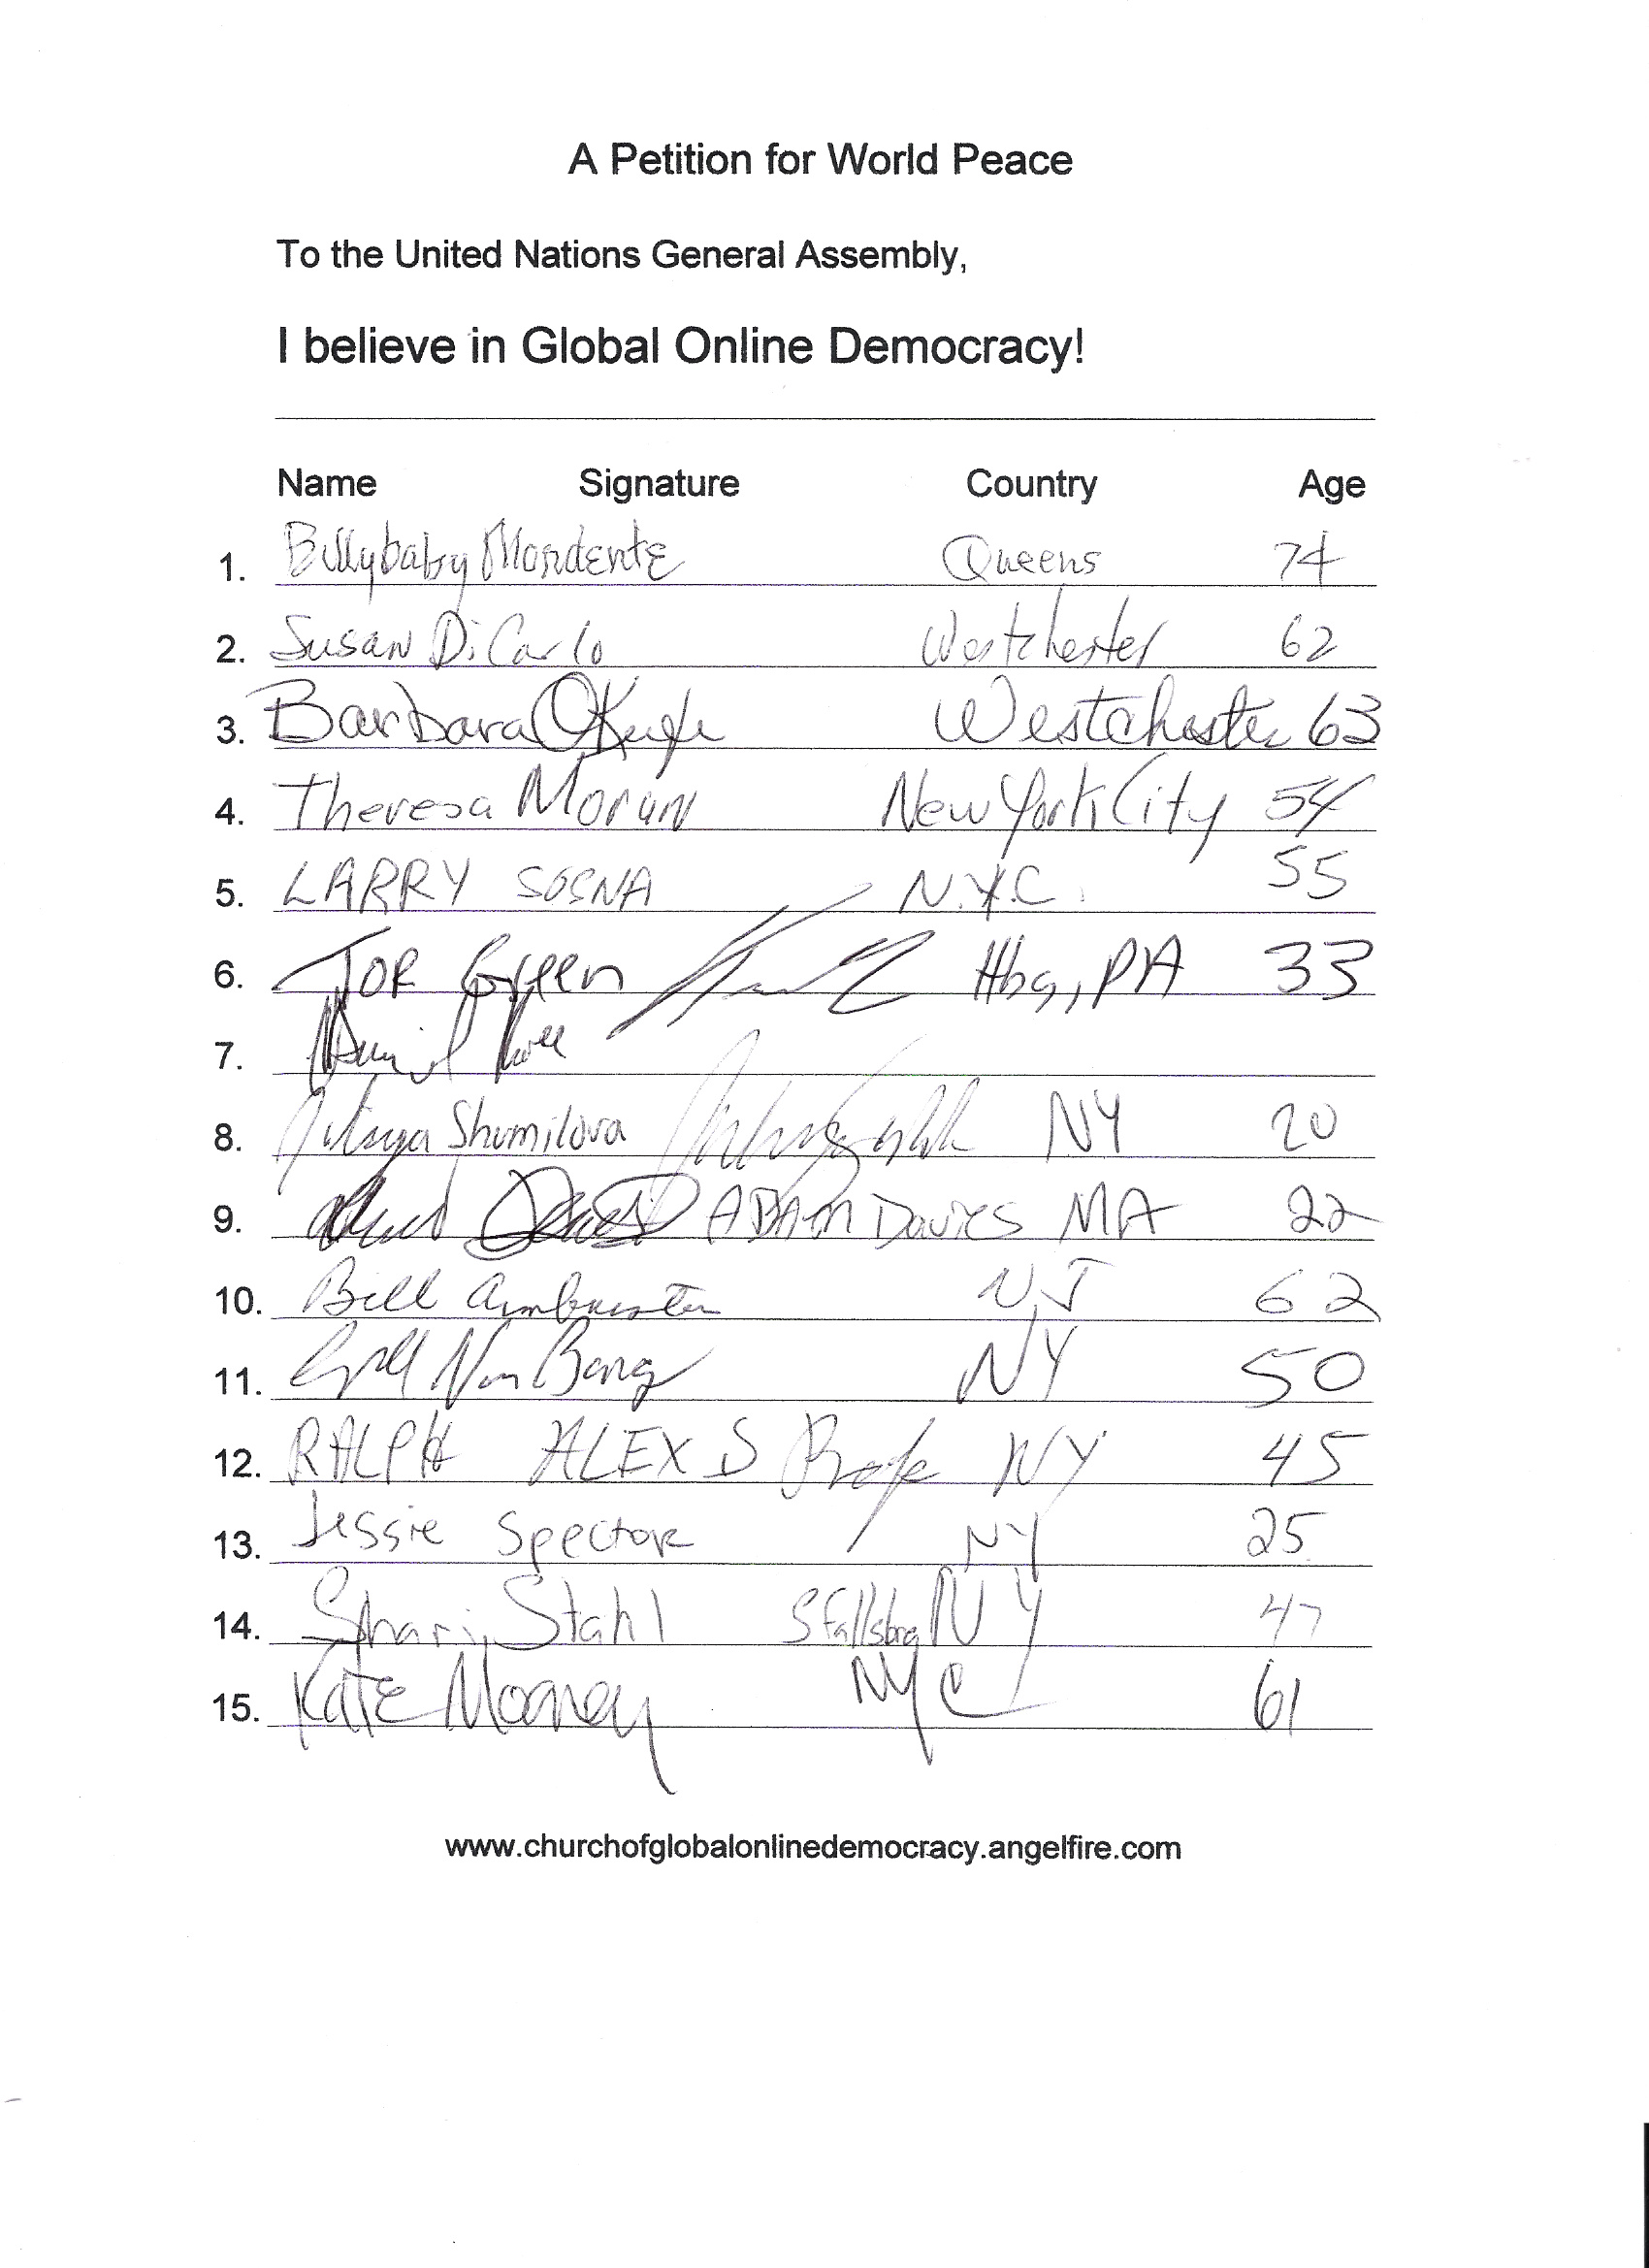 A Petition for World Peace
To the United Nations General Assembly,
I believe in Global Online Democracy!
Name Signature Country Age
1. Billybaby Mondente Queens 74
2. Susan DiCarlo Westchester 62
3. Barbara Westchester 63
4. Theresa Moran New York City 54
5. LARRY SOSNA N.Y.C. 55
6. JOE Green Hbg, PA 33
7.
8. Shumilova NY 20
9. ADAM DAVIES MA 22
10. Bill NJ 62
11. NY 50
12. RALPH ALEX S NY 45
13. Jessie Spector NY 25
14. Shari Stahl S Fallsbrg NY 47
15. KATE Mooney NYC 61
www.churchofglobalonlinedemocracy.angelfire.com